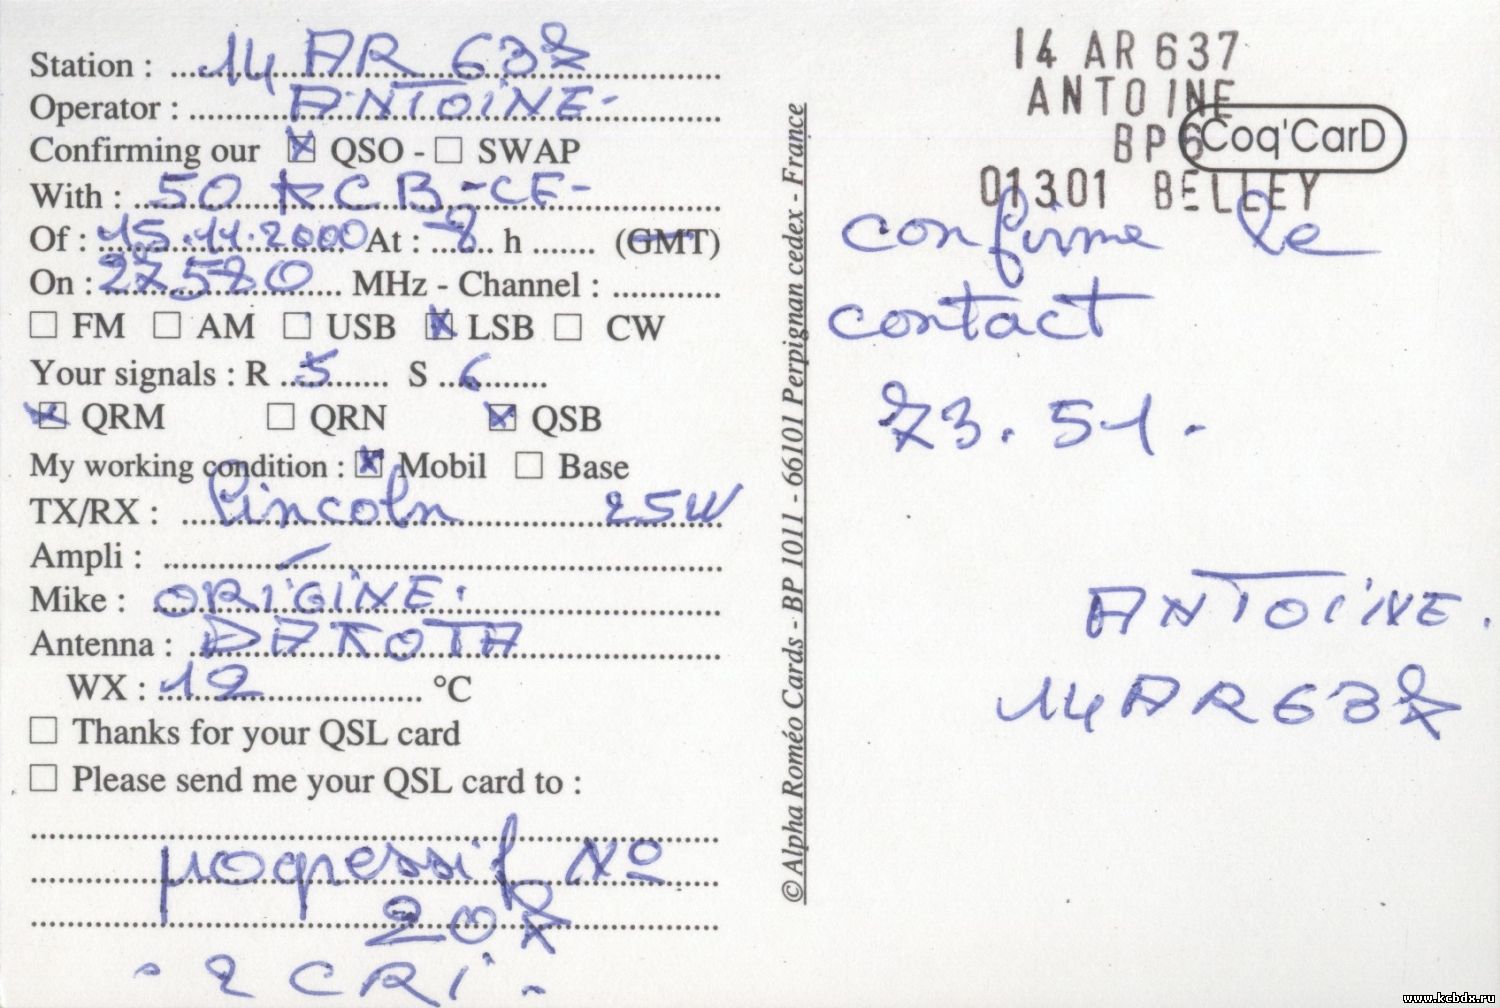 Station : 14 AR 637
Operator : ANTOINE-
Confirming our ☒ QSO - ☐ SWAP
With : 50 KCB-CF-
Of : 15.11.2000 At : -8 h ....... (GMT)
On : 27.580 MHz - Channel : ............
☐ FM ☐ AM ☐ USB ☒ LSB ☐ CW
Your signals : R 5 S 6
☒ QRM ☐ QRN ☒ QSB
My working condition : ☒ Mobil ☐ Base
TX/RX : Lincoln 25W
Ampli : -
Mike : ORIGINE.
Antenna : DAKOTA
WX : 12 °C
☐ Thanks for your QSL card
☐ Please send me your QSL card to :
progressif No
207
- 2 CRI -
© Alpha Roméo Cards - BP 1011 - 66101 Perpignan cedex - France
14 AR 637
ANTOINE
BP 6
Coq'CarD
01301 BELLEY
confirme le
contact
73.51.
ANTOINE.
14AR637
www.kcbdx.ru